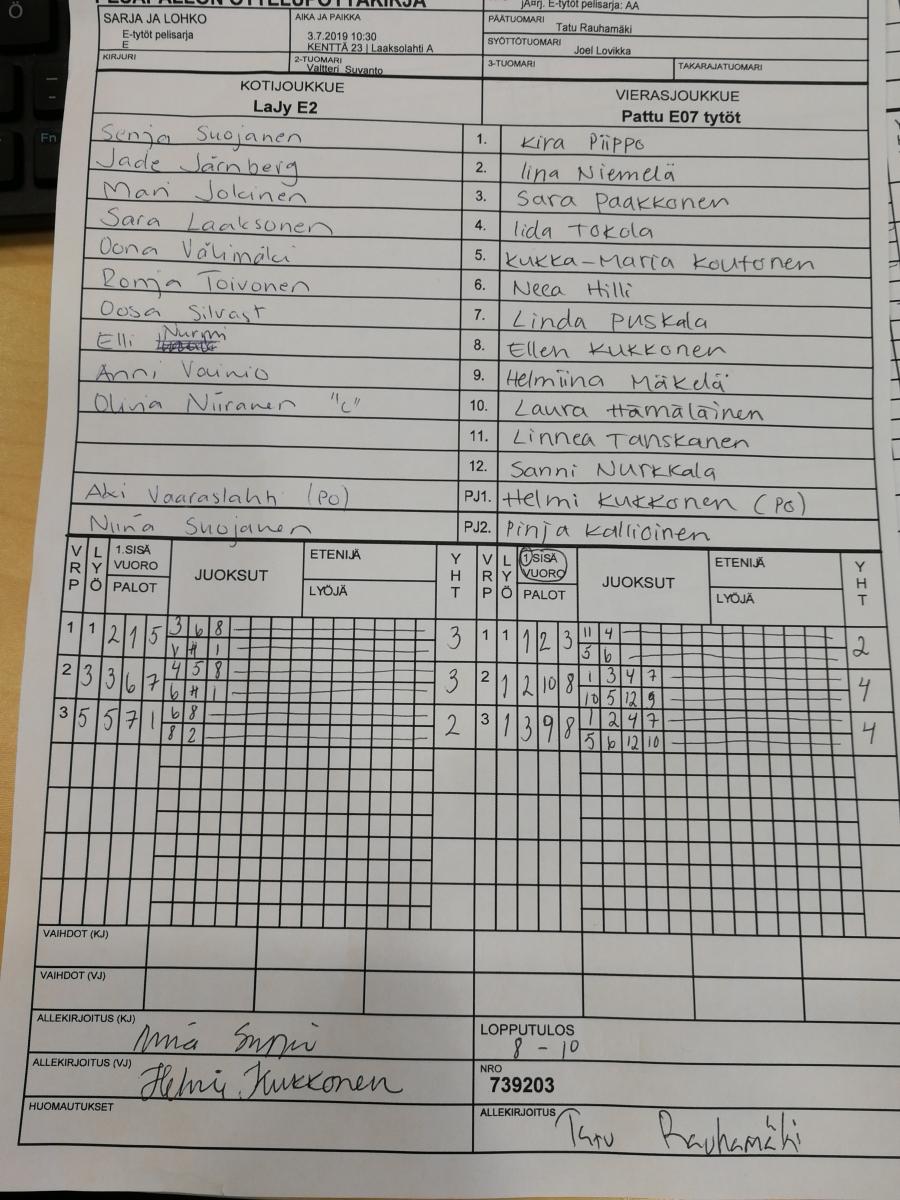 PESÄPALLON OTTELUPÖYTÄKIRJA
SARJA JA LOHKO
E-tytöt pelisarja
E
AIKA JA PAIKKA
3.7.2019 10:30
KENTTÄ 23 | Laaksolahti A
E-tytöt pelisarja: AA
PÄÄTUOMARI
Tatu Rauhamäki
SYÖTTÖTUOMARI
Joel Lovikka
KIRJURI
2-TUOMARI
Valtteri Suvanto
3-TUOMARI
TAKARAJATUOMARI
KOTIJOUKKUE
LaJy E2
VIERASJOUKKUE
Pattu E07 tytöt
Senja Suojanen 1. Kira Piippo
Jade Järnberg 2. Iina Niemelä
Mari Jokinen 3. Sara Paakkonen
Sara Laaksonen 4. Iida Tokola
Oona Välimäki 5. Kukka-Maria Koutonen
Ronja Toivonen 6. Neea Hilli
Oosa Silvast 7. Linda Puskala
Elli Nurmi 8. Ellen Kukkonen
Anni Vainio 9. Helmiina Mäkelä
Olivia Niiranen "C" 10. Laura Hämäläinen
11. Linnea Tanskanen
12. Sanni Nurkkala
Aki Vaaraslahti (PO) PJ1. Helmi Kukkonen (PO)
Niina Suojanen PJ2. Pinja Kallioinen
VRP LYÖ 1.SISÄ VUORO PALOT JUOKSUT ETENIJÄ LYÖJÄ YHT VRP LYÖ 1.SISÄ VUORO PALOT JUOKSUT ETENIJÄ LYÖJÄ YHT
1 1 2 1 5 3 6 8 3 1 1 1 2 3 11 4 2
V # 1 5 6
2 3 3 6 7 4 5 8 3 2 1 2 10 8 1 3 4 7 4
6 # 1 10 5 12 9
3 5 5 7 1 6 8 2 3 1 3 9 8 1 2 4 7 4
8 2 5 6 12 10
VAIHDOT (KJ)
VAIHDOT (VJ)
ALLEKIRJOITUS (KJ)
LOPPUTULOS
8 - 10
ALLEKIRJOITUS (VJ) Helmi Kukkonen
NRO
739203
HUOMAUTUKSET
ALLEKIRJOITUS Tatu Rauhamäki